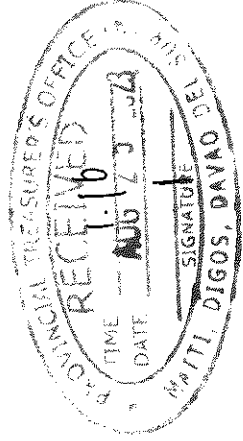 PROVINCIAL TREASURER'S OFFICE
RECEIVED
TIME 1:10
DATE AUG
SIGNATURE
MATTI, DIGOS, DAVAO DEL SUR